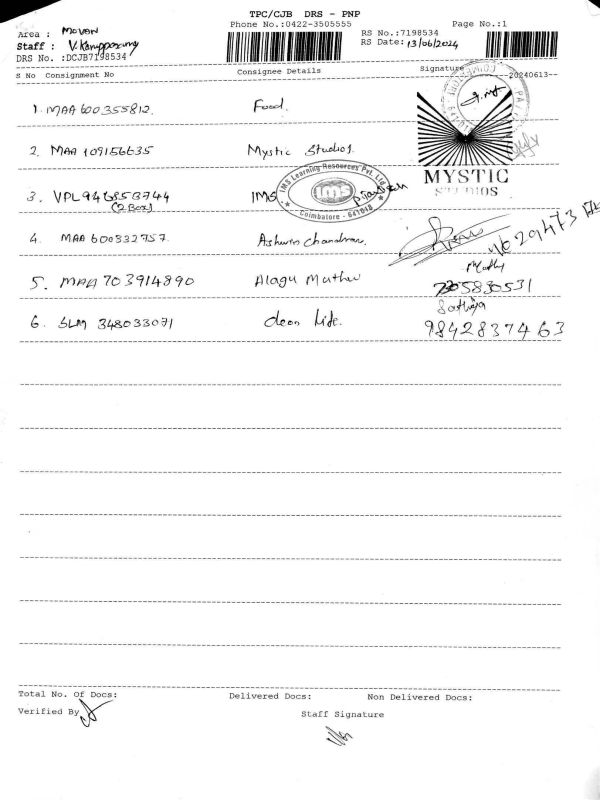 TPC/CJB DRS - PNP
Phone No.:0422-3505555 Page No.:1
Area : MOVAN
Staff : V.Karuppasamy
RS No.:7198534
RS Date: 13/06/2024
DRS No. :DCJB7198534
S No Consignment No Consignee Details Signature --20240613--
1. MAA 600355812. Food.
2. MAA 109156635 Mystic Studios.
MYSTIC
STUDIOS
3. VPL946858744 IMS
(2 Box)
IMS Learning Resources Pvt. Ltd.
IMS
Coimbatore - 641018
4. MAA 600332757. Ashwin Chandran.
5. MAA 703914890 Alagu Muthu 7305830531
6. SLM 348033071 Clean Life. Sathya
9842837463
Total No. Of Docs: Delivered Docs: Non Delivered Docs:
Verified By
Staff Signature